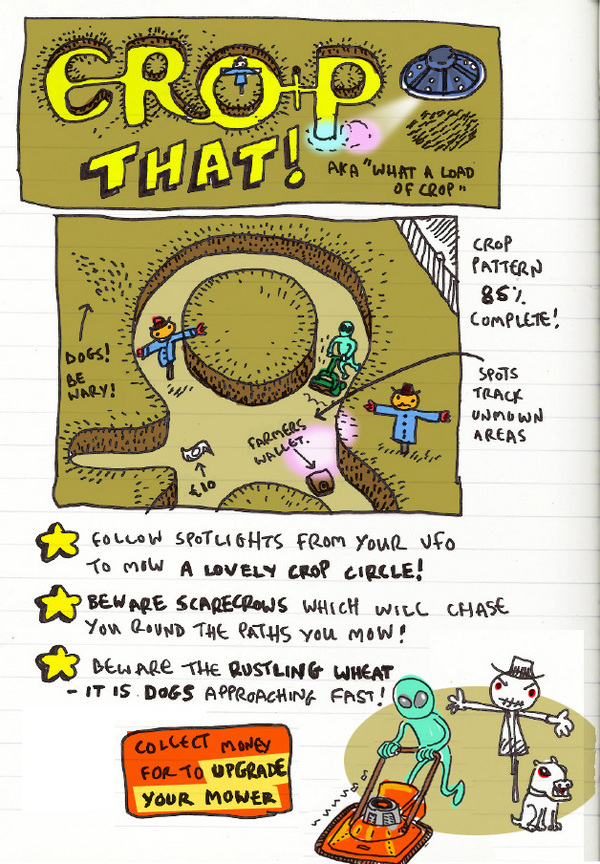 CROP
THAT!
AKA "WHAT A LOAD
OF CROP"
CROP
PATTERN
85%
COMPLETE!
DOGS!
BE
WARY!
SPOTS
TRACK
UNMOWN
AREAS
FARMERS
WALLET.
£10
FOLLOW SPOTLIGHTS FROM YOUR UFO
TO MOW A LOVELY CROP CIRCLE!
BEWARE SCARECROWS WHICH WILL CHASE
YOU ROUND THE PATHS YOU MOW!
BEWARE THE RUSTLING WHEAT
- IT IS DOGS APPROACHING FAST!
COLLECT MONEY
FOR TO UPGRADE
YOUR MOWER